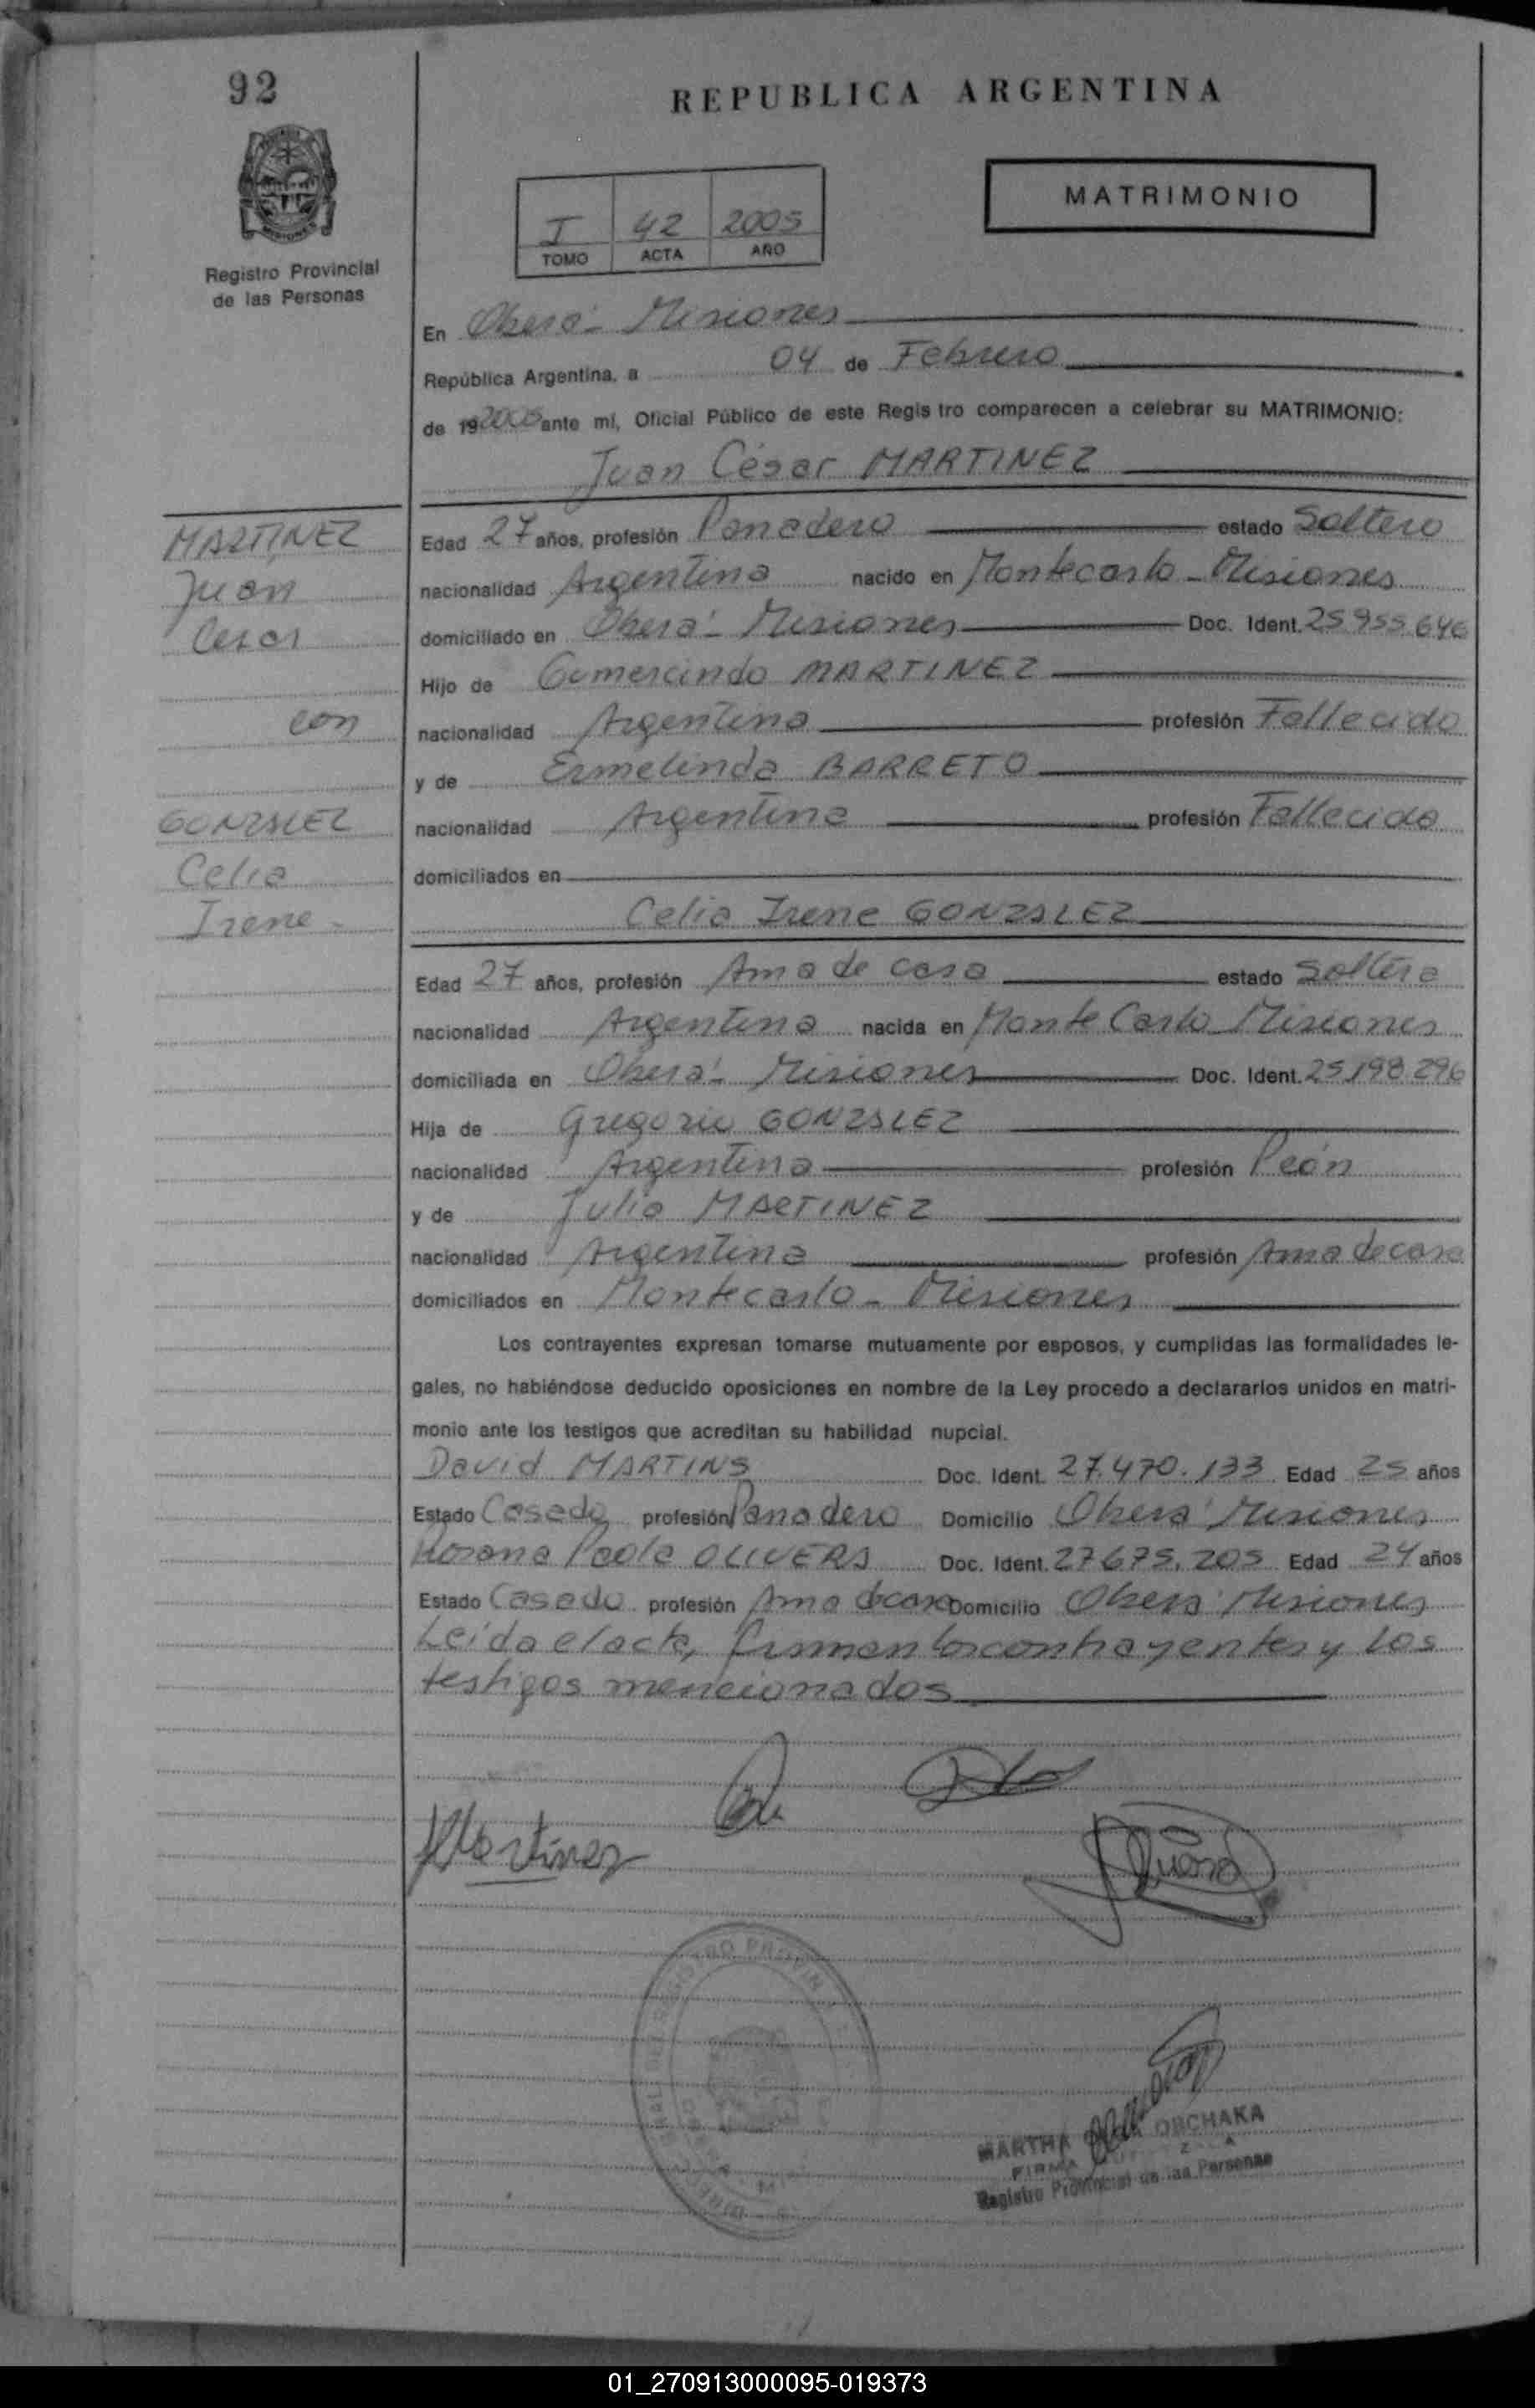 92
REPUBLICA ARGENTINA
MISIONES
Registro Provincial
de las Personas
I 42 2005
TOMO ACTA AÑO
MATRIMONIO
En Oberá - Misiones
República Argentina, a 04 de Febrero
de 19 2005 ante mí, Oficial Público de este Registro comparecen a celebrar su MATRIMONIO:
Juan César MARTINEZ
MARTINEZ
Juan
Cesar
con
GONZALEZ
Celia
Irene -
Edad 27 años, profesión Panadero estado Soltero
nacionalidad Argentina nacido en Montecarlo - Misiones
domiciliado en Oberá - Misiones Doc. Ident. 25.955.646
Hijo de Gumercindo MARTINEZ
nacionalidad Argentina profesión Fallecido
y de Ermelinda BARRETO
nacionalidad Argentina profesión Fallecida
domiciliados en
Celia Irene GONZALEZ
Edad 27 años, profesión Ama de casa estado Soltera
nacionalidad Argentina nacida en Monte Carlo Misiones
domiciliada en Oberá - Misiones Doc. Ident. 25.198.296
Hija de Gregorio GONZALEZ
nacionalidad Argentina profesión Peón
y de Julia MARTINEZ
nacionalidad Argentina profesión Ama de casa
domiciliados en Montecarlo - Misiones
Los contrayentes expresan tomarse mutuamente por esposos, y cumplidas las formalidades le-
gales, no habiéndose deducido oposiciones en nombre de la Ley procedo a declararlos unidos en matri-
monio ante los testigos que acreditan su habilidad nupcial.
David MARTINS Doc. Ident. 27.470.133 Edad 25 años
Estado Casado profesión Panadero Domicilio Oberá Misiones
Rosana Paola OLIVERA Doc. Ident. 27675.205 Edad 24 años
Estado Casada profesión Ama de casa Domicilio Oberá Misiones
Leída el acta, firman los contrayentes y los
testigos mencionados
Martinez
MARTHA OBCHAKA
FIRMA
Registro Provincial de las Personas
01_270913000095-019373